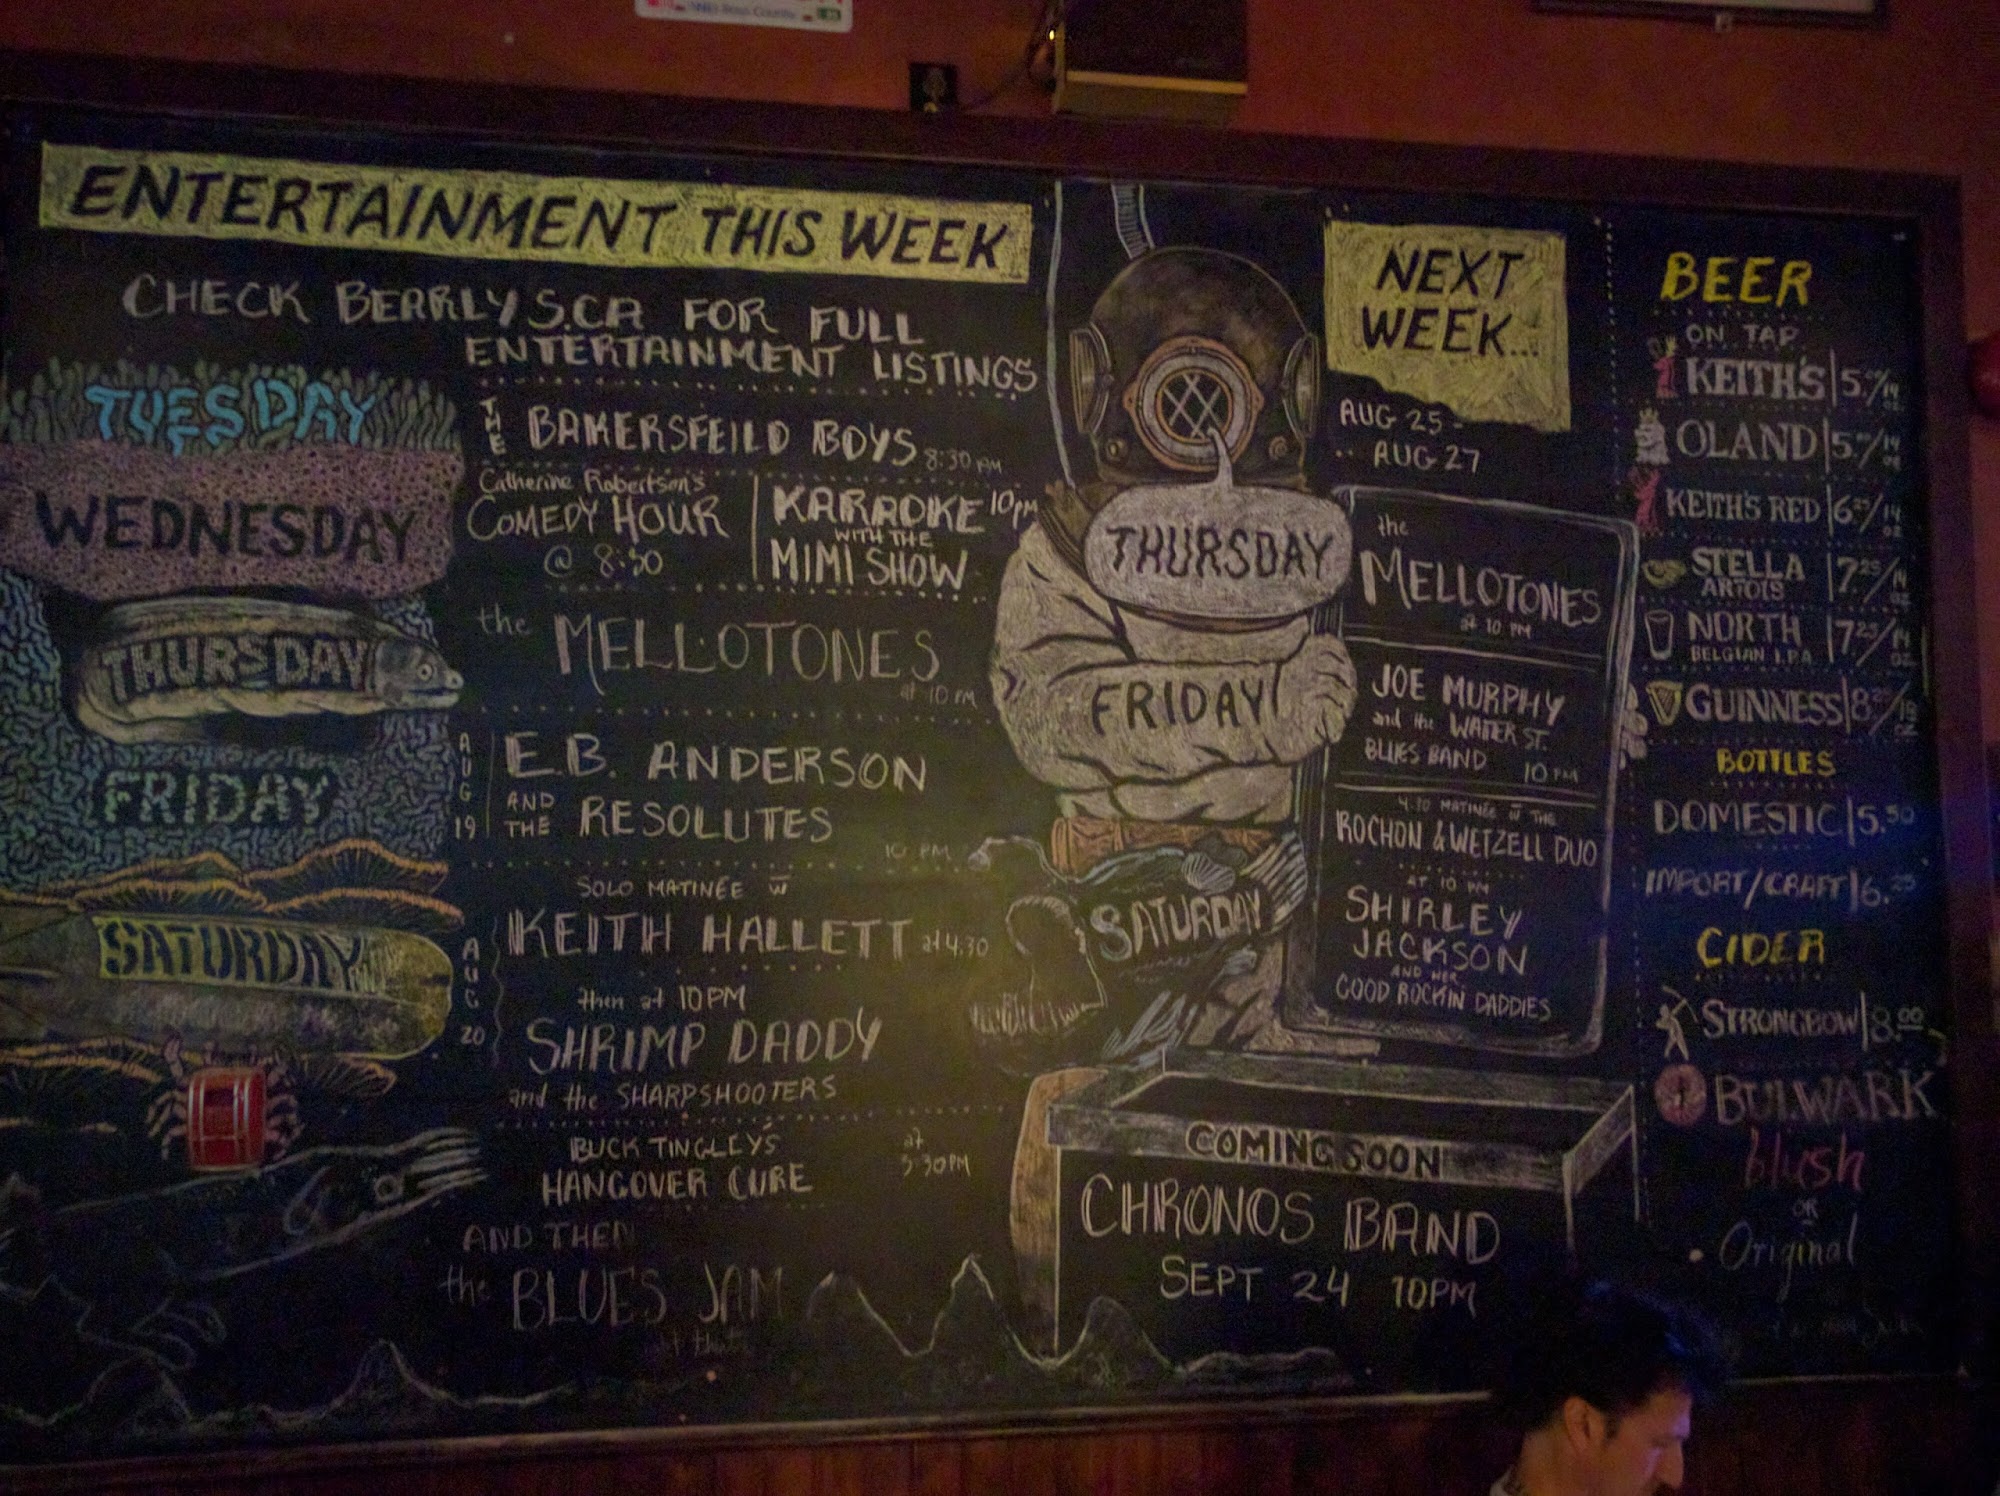 ENTERTAINMENT THIS WEEK
CHECK BEARLYS.CA FOR FULL
ENTERTAINMENT LISTINGS
TUESDAY
THE BAKERSFEILD BOYS 8:30 PM
WEDNESDAY
Catherine Robertson's
COMEDY HOUR
@ 8:30
KARAOKE 10pm
WITH THE
MIMI SHOW
THURSDAY
the MELLOTONES
at 10 PM
FRIDAY
AUG 19
E.B. ANDERSON
AND THE RESOLUTES
10 PM
SATURDAY
AUG 20
SOLO MATINÉE W
KEITH HALLETT at 4:30
then at 10PM
SHRIMP DADDY
and the SHARPSHOOTERS
BUCK TINGLEY'S
HANGOVER CURE
at
3:30PM
AND THEN
the BLUES JAM
NEXT
WEEK...
AUG 25 -
AUG 27
THURSDAY
the
MELLOTONES
at 10 PM
FRIDAY
JOE MURPHY
and the WATER ST.
BLUES BAND 10 PM
SATURDAY
4:30 MATINÉE W THE
ROCHON & WETZELL DUO
AT 10 PM
SHIRLEY
JACKSON
AND HER
GOOD ROCKIN DADDIES
COMING SOON
CHRONOS BAND
SEPT 24 10PM
BEER
ON TAP
KEITH'S 5. /14 oz
OLAND 5. /14 oz
KEITH'S RED 6.25/14 oz
STELLA 7.25/14 oz
ARTOIS
NORTH 7.25/14 oz
BELGIAN I.P.A.
GUINNESS 8. / oz
BOTTLES
DOMESTIC 5.50
IMPORT/CRAFT 6.25
CIDER
STRONGBOW 8.00
BULWARK
blush
OR
Original